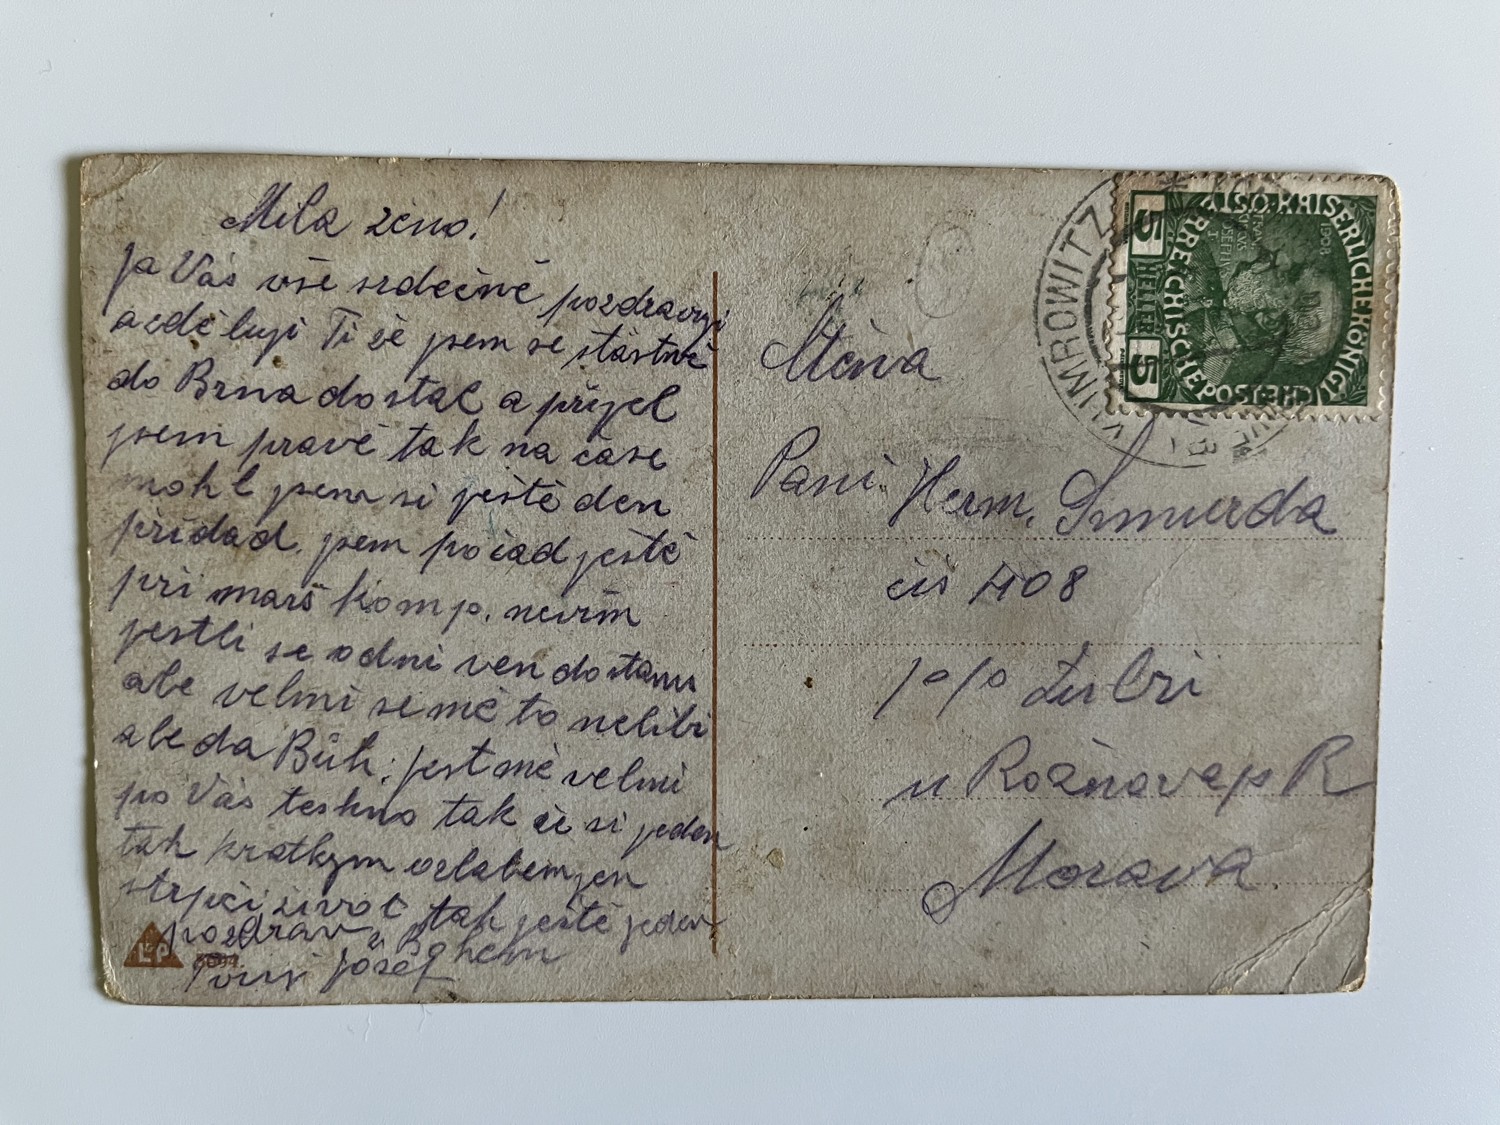 Milá ženo!
Ja Vás vše srdečně pozdravuji
a zděluji Ti že jsem se štástně
do Brna dostal a přijel
jsem pravě tak na čase
mohl jsem si ještě den
přidad. jsem pořad ještě
při marš komp. nevím
jestli se odni ven dostanu
ale velmi se mě to nelibi
ale da Bůh; jest mě velmi
po Vás teskno tak že si jeden
tak kratkym ozlabemjen
strpči život, tak ještě jeden
pozdrav s Bohem
Tvuj Josef
LP
Ctěna
Paní Herm. Smurda
čis 408
p/p Zubri
u Rožnova p R
Morava
KAIS. KÖNIGL.
ÖSTERREICHISCHE POST
5 HELLER 5
1908